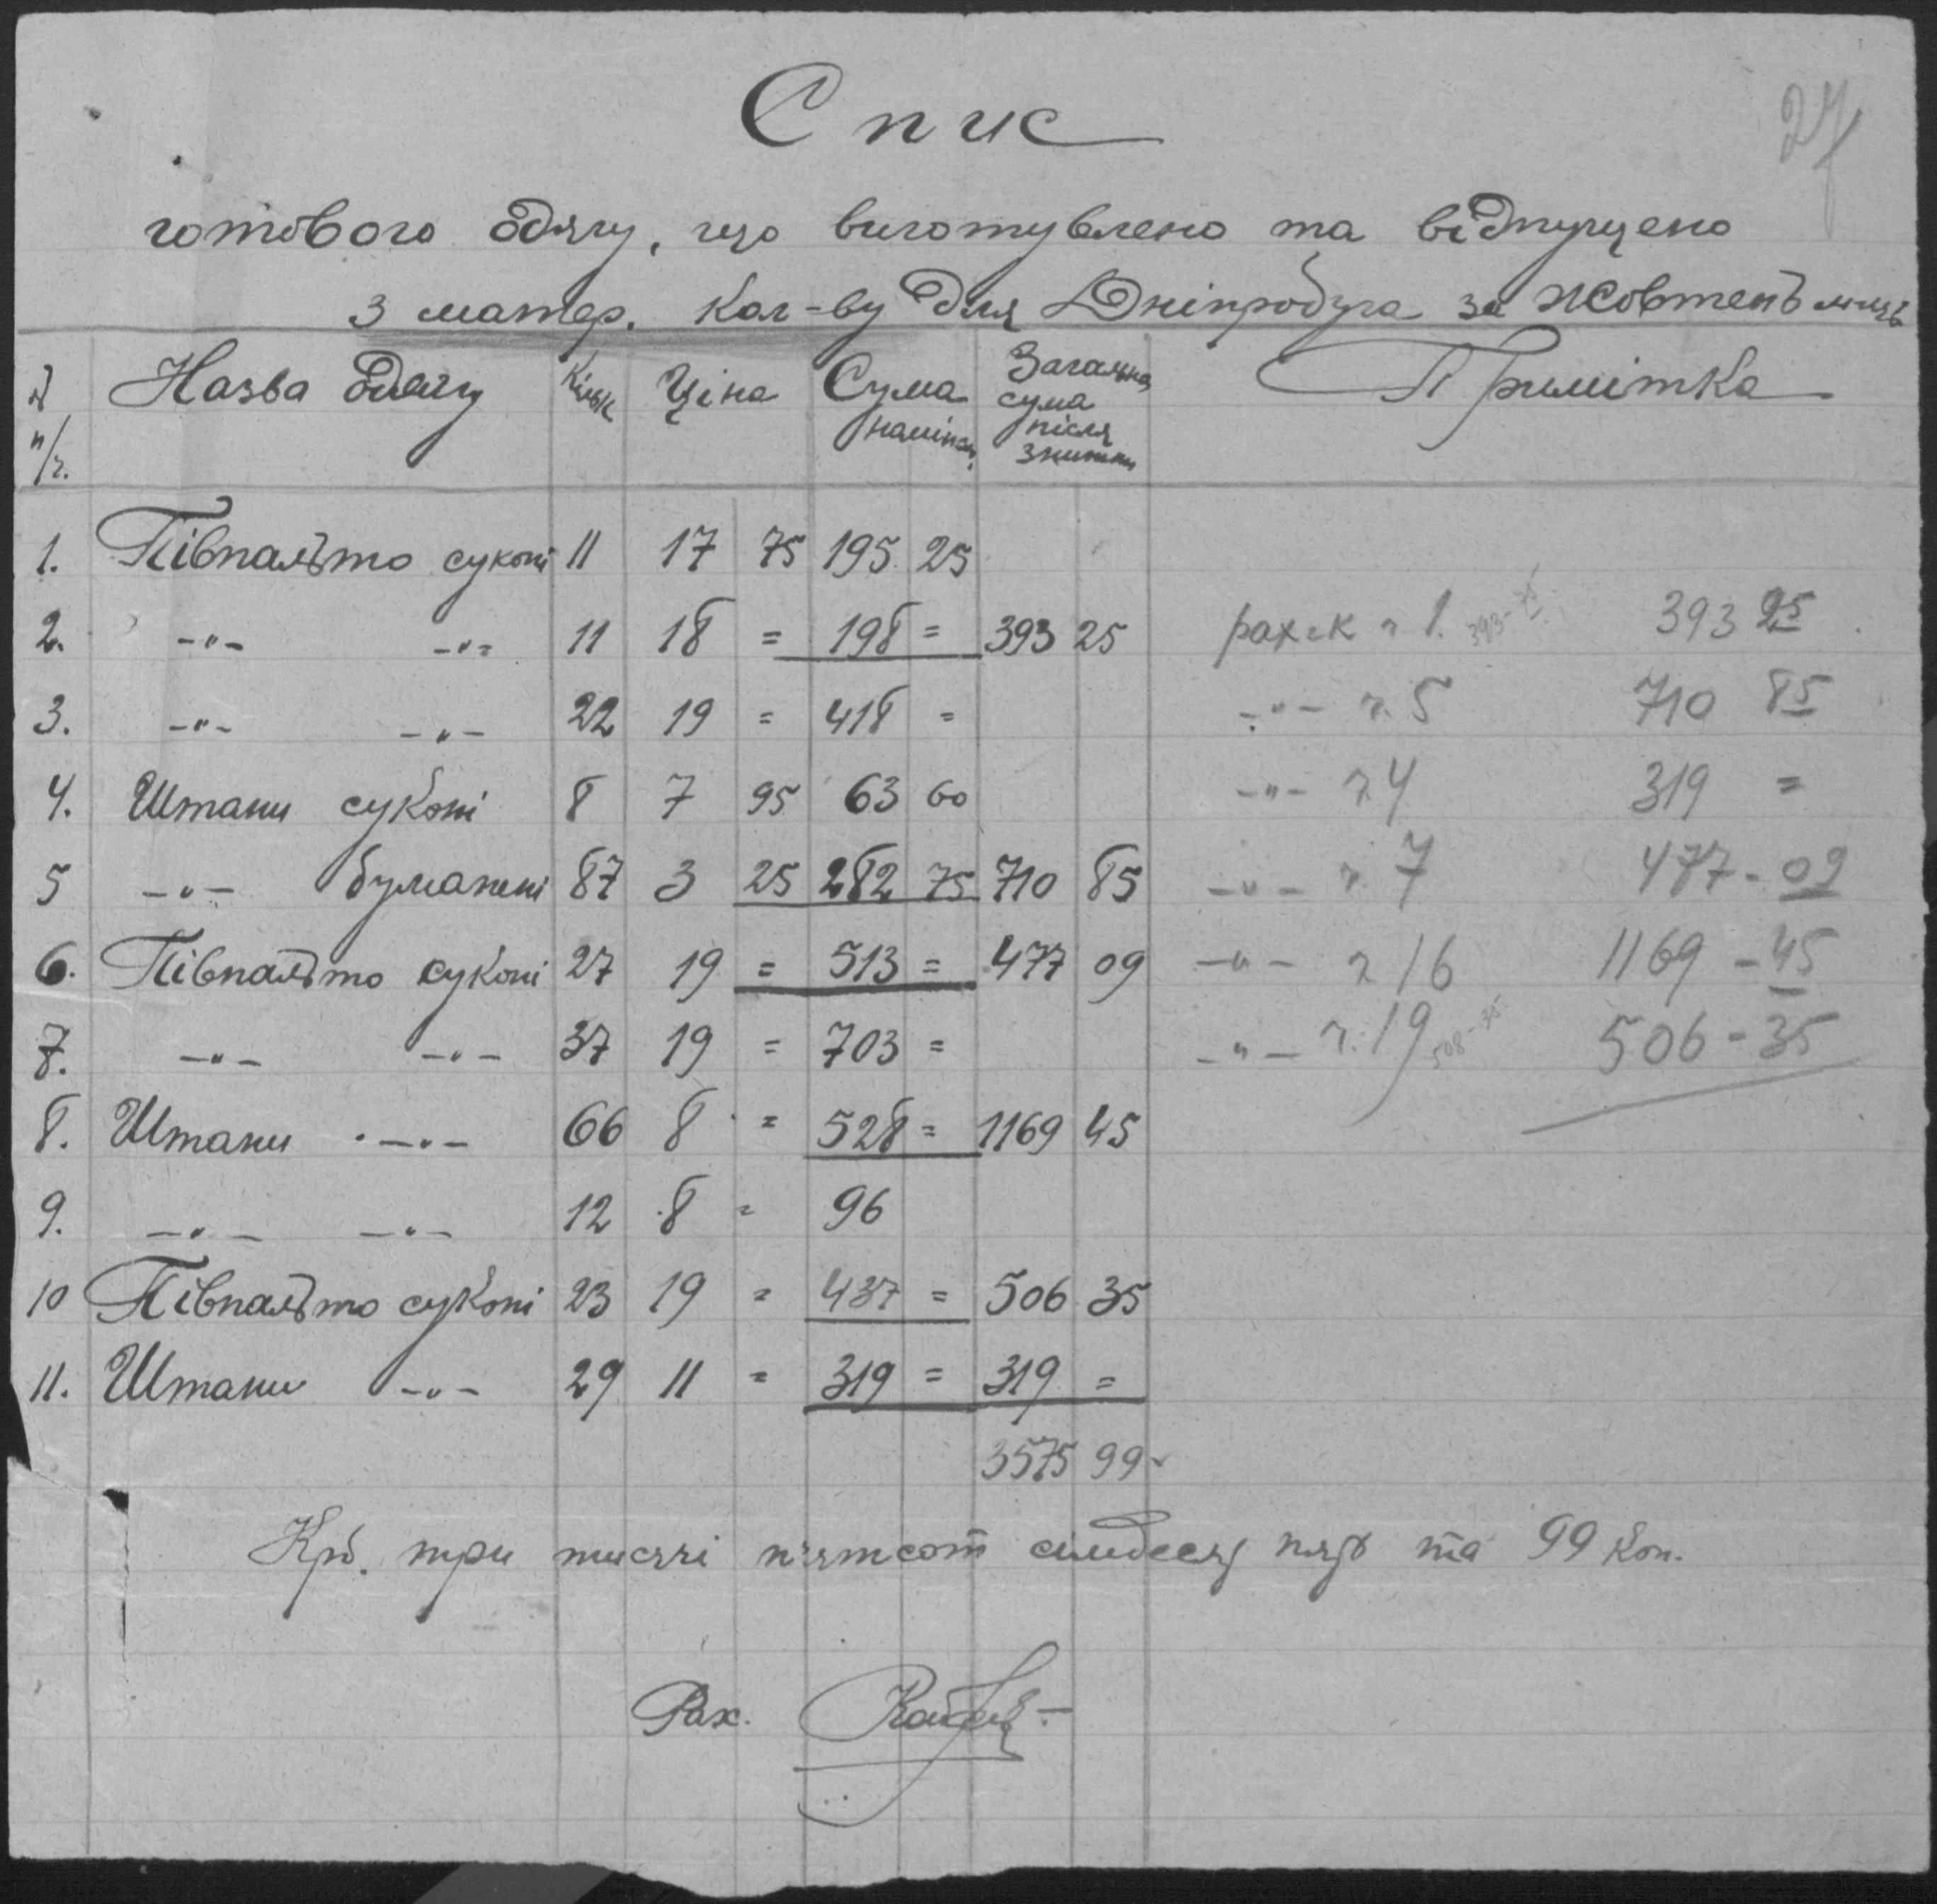 27
Спис
готового одягу, що виготувлено та відпущено
з матер. Кол-ву для Дніпробуга за Жовтень м-ць
№ п/ч. Назва одягу Кільк Ціна Сума Загальна сума після знижки Примітка
1. Півпальто суконі 11 17 75 195 25
2. -"- -"- 11 18 = 198 = 393 25 рах-к ч 1. 393 25
3. -"- -"- 22 19 = 418 = -"- ч. 5 710 85
4. Штани суконі 8 7 95 63 60 -"- ч 4 319 =
5 -"- бумажені 87 3 25 282 75 710 85 -"- ч. 7 477-09
6. Півпальто суконі 27 19 = 513 = 477 09 -"- ч 16 1169-45
7. -"- -"- 37 19 = 703 = -"- ч. 19 508-35 506-35
8. Штани -"- 66 8 = 528 = 1169 45
9. -"- -"- 12 8 = 96
10 Півпальто суконі 23 19 = 437 = 506 35
11. Штани -"- 29 11 = 319 = 319 =
3575 99
Крб. три тисячі п'ятсот сімдесят пять та 99 коп.
Рах.